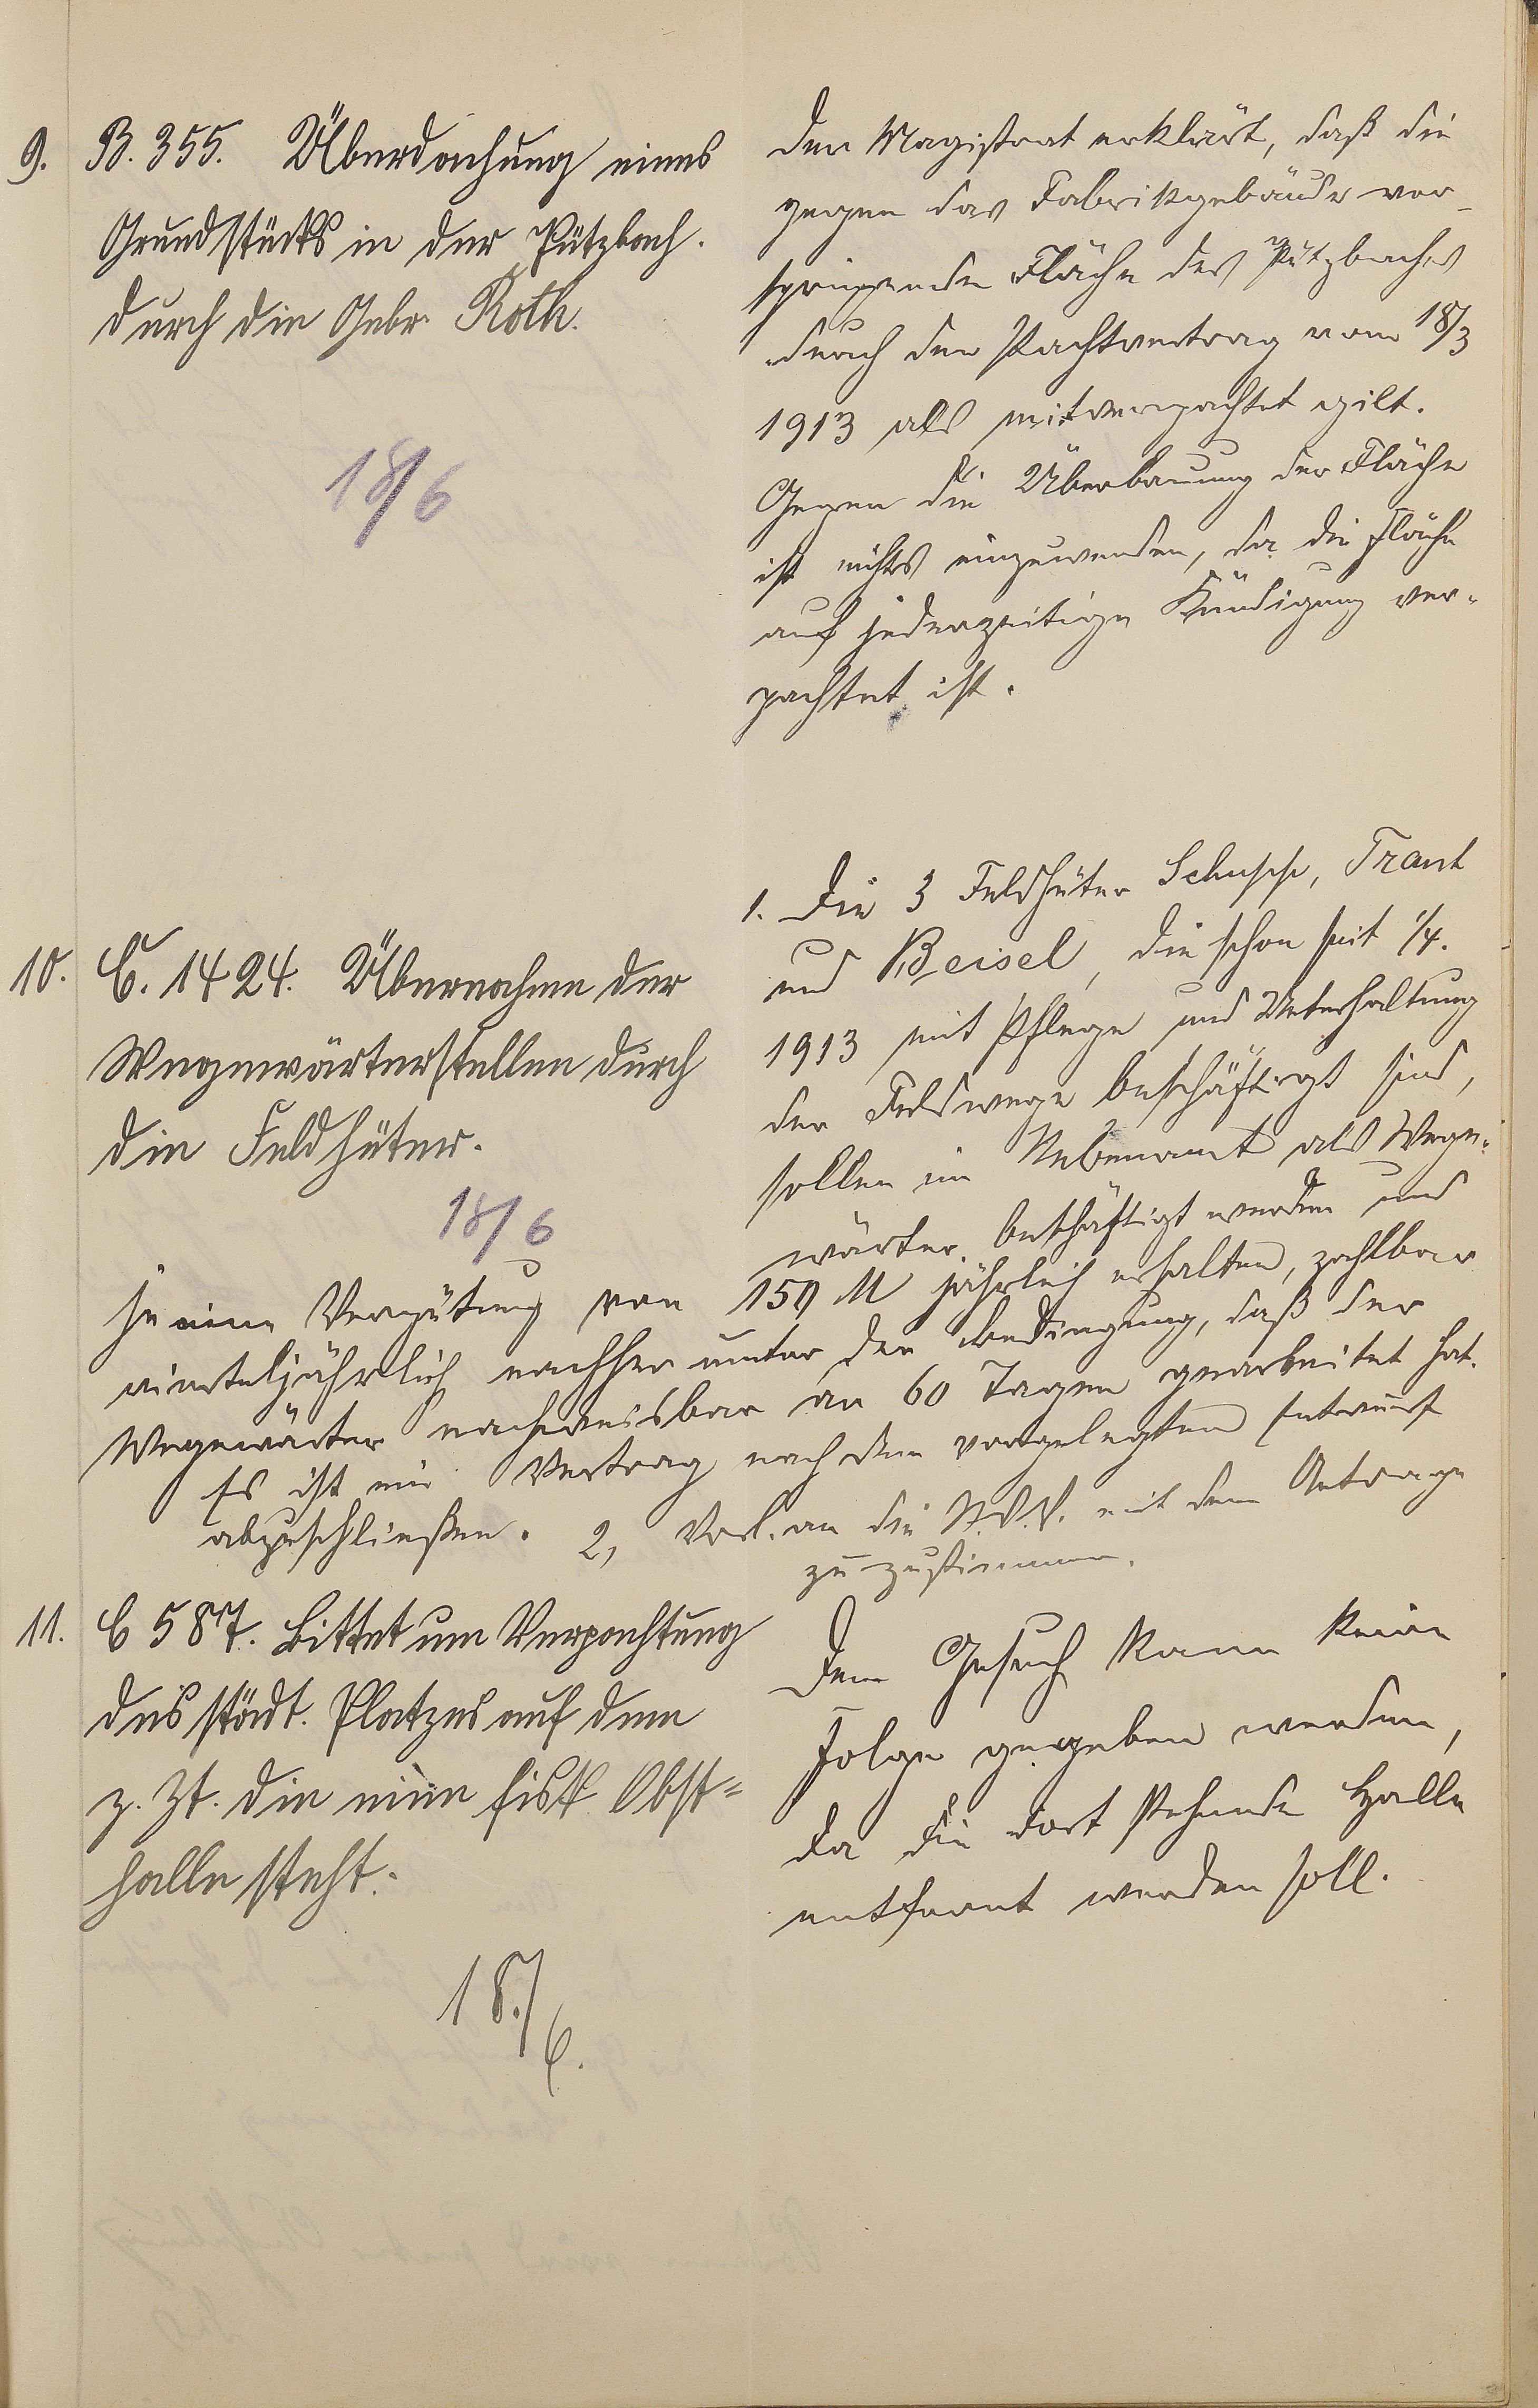 9. B. 355. Überdachung eines
Grundstücks in der Pützbach.
durch die Gebr. Roth.
18/6
Der Magistrat erklärt, daß die
gegen das Fabrikgebäude vor-
springende Fläche des Pützbaches
durch den Pachtvertrag vom 18/3
1913 als mitverpachtet gilt.
Gegen die Überbauung der Fläche
ist nichts einzuwenden, da die Fläche
auf jederzeitige Kündigung ver-
pachtet ist.
10. C. 1424. Übernahme der
Wegewärterstellen durch
die Feldhüter.
18/6
1. Die 3 Feldhüter Schupp, Trant
und Beisel, die schon seit 1/4.
1913 mit Pflege und Unterhaltung
der Feldwege beschäftigt sind,
sollen im Nebenamt als Wege-
wärter beschäftigt werden und
je eine Vergütung von 150 M jährlich erhalten, zahlbar
vierteljährlich nachher unter der Bedingung, daß der
Wegewärter nachweisbar an 60 Tagen gearbeitet hat.
Es ist ein Vertrag nach dem vorgelegten Entwurf
abzuschließen. 2, Vorl. an die St.V.V. mit dem Antrage
zuzustimmen.
11. C 587. Bittet um Verpachtung
des städt. Platzes auf dem
z. Zt. die eine Obst-
halle steht.
18./6.
Dem Gesuch kann keine
Folge gegeben werden,
da die dort stehende Halle
entfernt werden soll.